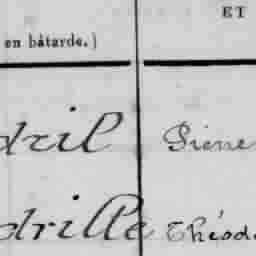 ET
en bâtarde.)
dril Pierre
drille Théod